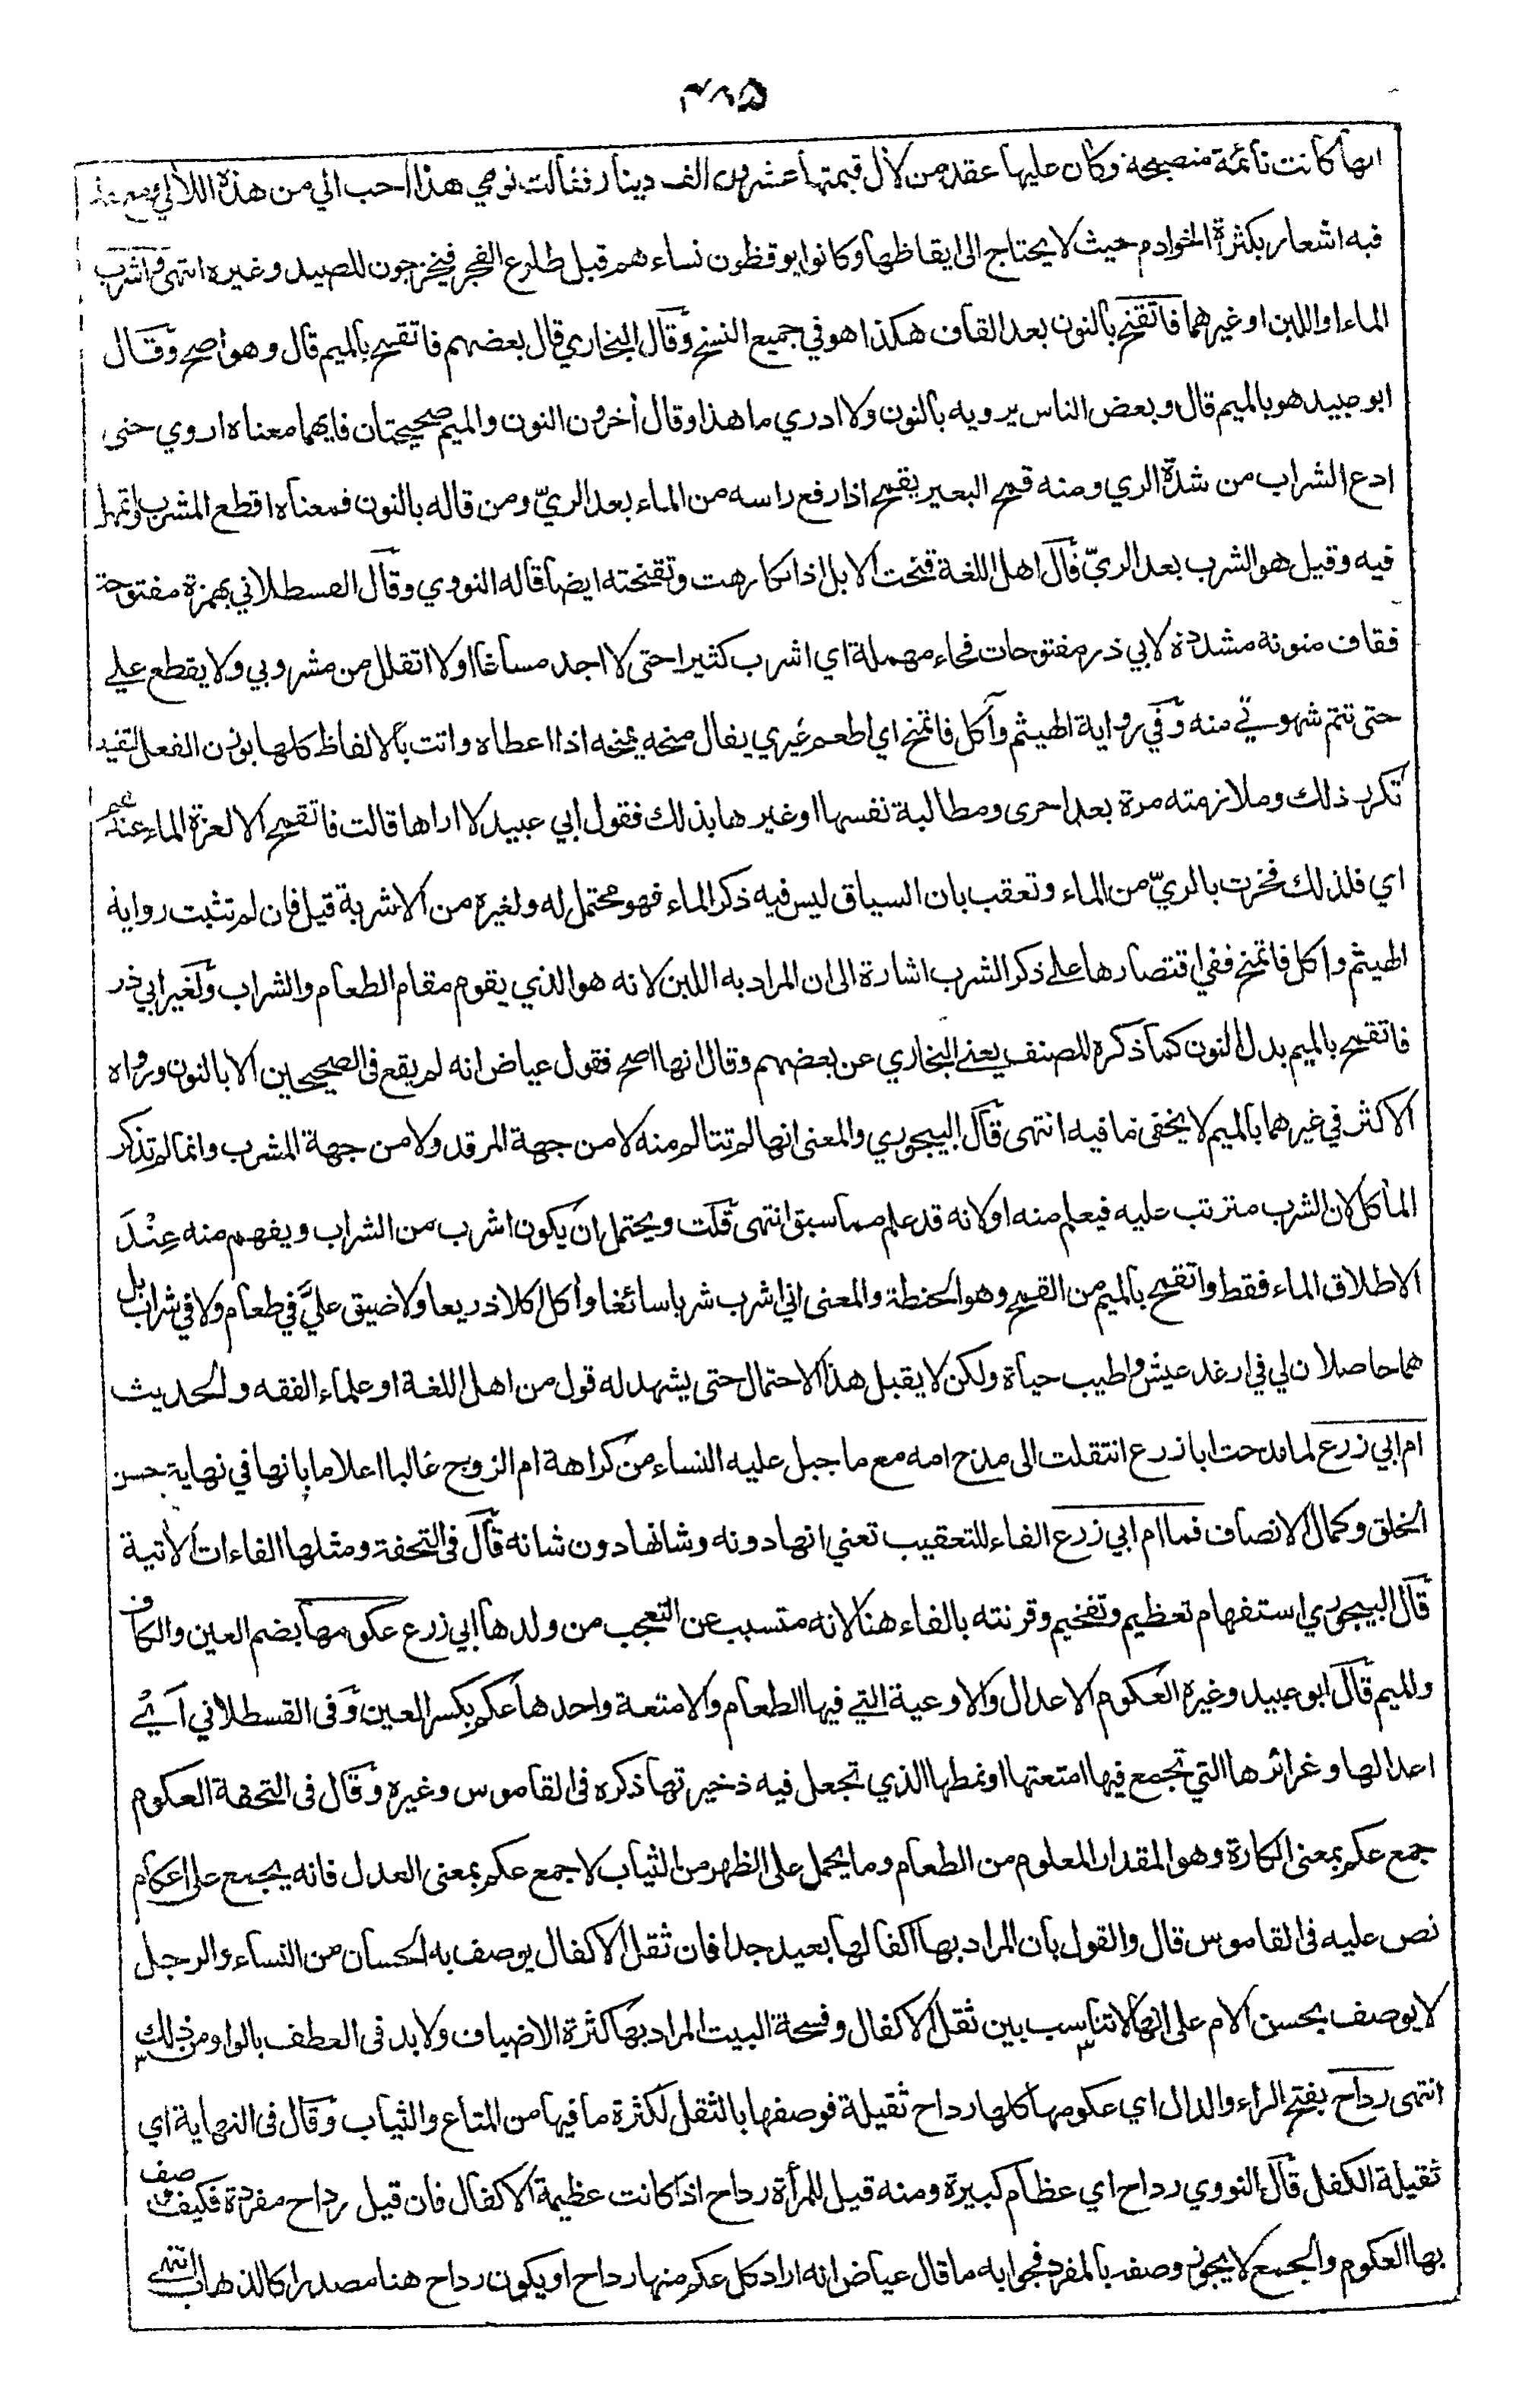 ٤٨٥
انها كانت نائمة منصبحة وكان عليها عقد من لآل قيمتها عشرون الف دينار فقالت نومي هذا احب الي من هذه اللآلي
فيه اشعار بكثرة الخوادم حيث لا يحتاج الى ايقاظها وكانوا يوقظون نساءهم قبل طلوع الفجر فيخرجون للصيد وغيره انتهى واشرب
الماء او اللبن او غيرهما فاتقنح بالنون بعد القاف هكذا هو في جميع النسخ وقال البخاري قال بعضهم فاتقمح بالميم قال وهو اصح وقال
ابو عبيد هو بالميم قال وبعض الناس يرويه بالنون ولا ادري ما هذا وقال آخرون النون والميم صحيحتان فايهما معناه اروي حتى
ادع الشراب من شدة الري ومنه قمح البعير يقمح اذا رفع راسه من الماء بعد الريّ ومن قاله بالنون فمعناه اقطع المشرب واتمهل
فيه وقيل هو الشرب بعد الريّ قال اهل اللغة قنحت الابل اذا تكارهت وتقنحته ايضا قاله النووي وقال القسطلاني بهمزة مفتوحة
فقاف منونة مشددة لابي ذر مفتوحات فحاء مهملة اي اشرب كثيرا حتى لا اجد مساغا او لا اتقلل من مشروبي ولا يقطع علي
حتى تتم شهوتي منه وفي رواية الهيثم وآكل فاتمنح اي اطعم غيري يقال منحه يمنحه اذا اعطاه واتت بالالفاظ كلها بوزن الفعل لتفيد
تكرر ذلك وملازمته مرة بعد اخرى ومطالبة نفسها او غيرها بذلك فقول ابي عبيد لا اراها قالت فاتقمح الا لعزة الماء عندهم
اي فلذلك فخرت بالريّ من الماء وتعقب بان السياق ليس فيه ذكر الماء فهو محتمل له ولغيره من الاشربة قيل فان لم تثبت رواية
الهيثم وآكل فاتمنح ففي اقتصارها على ذكر الشرب اشارة الى ان المراد به اللبن لانه هو الذي يقوم مقام الطعام والشراب ولغير ابي ذر
فاتقمح بالميم بدل النون كما ذكره المصنف يعني البخاري عن بعضهم وقال انها اصح فقول عياض انه لم يقع في الصحيحين الا بالنون ورواه
الاكثر في غيرهما بالميم لا يخفى ما فيه انتهى قال البيجوري والمعنى انها لم تتالم منه لا من جهة المرقد ولا من جهة المشرب وانما لم تذكر
المأكل لان الشرب مترتب عليه فيعلم منه او لانه قد علم مما سبق انتهى قلت ويحتمل ان يكون اشرب من الشراب ويفهم منه عِنْدَ
الاطلاق الماء فقط واتقمح بالميم من القمح وهو الحنطة والمعنى اني اشرب شربا سائغا وآكل اكلا ذريعا ولا ضيق عليّ في طعام ولا في شراب بل
هما حاصلان لي في ارغد عيش واطيب حياة ولكن لا يقبل هذا الاحتمال حتى يشهد له قول من اهل اللغة او علماء الفقه والحديث
ام ابي زرع لما مدحت ابا زرع انتقلت الى مدح امه مع ما جبل عليه النساء من كراهة ام الزوج غالبا اعلاما بانها في نهاية حسن
الخلق وكمال الانصاف فما ام ابي زرع الفاء للتعقيب تعني انها دونه وشانها دون شانه قال في التحفة ومثلها الفاءات الآتية
قال البيجوري استفهام تعظيم وتفخيم وقرنته بالفاء هنا لانه متسبب عن التعجب من ولدها ابي زرع عكومها بضم العين والكاف
والميم قال ابو عبيد وغيره العكوم الاعدال والاوعية التي فيها الطعام والامتعة واحدها عكم بكسر العين وفي القسطلاني اَيْ
اعدالها وغرائرها التي تجمع فيها امتعتها او نمطها الذي تجعل فيه ذخيرتها ذكره في القاموس وغيره وقال في التحفة العكوم
جمع عكم بمعنى الكارة وهو المقدار المعلوم من الطعام وما يحمل على الظهر من الثياب لا جمع عكم بمعنى العدل فانه يجمع على اعكام
نص عليه في القاموس قال والقول بان المراد بها اكفالها بعيد جدا فان ثقل الاكفال يوصف به الحسان من النساء والرجل
لا يوصف بحسن الام على انها لا تناسب بين ثقل الاكفال وفسحة البيت المراد بها كثرة الاضياف ولا بد في العطف بالواو من ذلك
انتهى رداح بفتح الراء والدال اي عكومها كلها رداح ثقيلة فوصفها بالثقل لكثرة ما فيها من المتاع والثياب وقال في النهاية اي
ثقيلة الكفل قال النووي رداح اي عظام كبيرة ومنه قيل للمرأة رداح اذا كانت عظيمة الاكفال فان قيل رداح مفردة فكيف وصف
بها العكوم والجمع لا يجوز وصفه بالمفرد فجوابه ما قال عياض انه اراد كل عكم منها رداح او يكون رداح هنا مصدرا كالذهاب انتهى